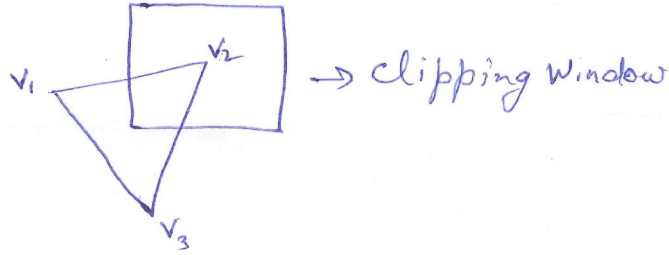 V₂
V₁
→ Clipping Window
V₃